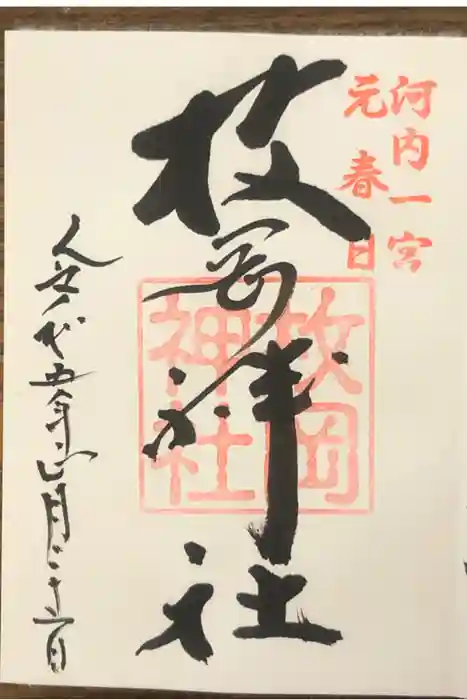 河内一宮
元春日
枚岡神社
枚岡
神社
令和五年正月